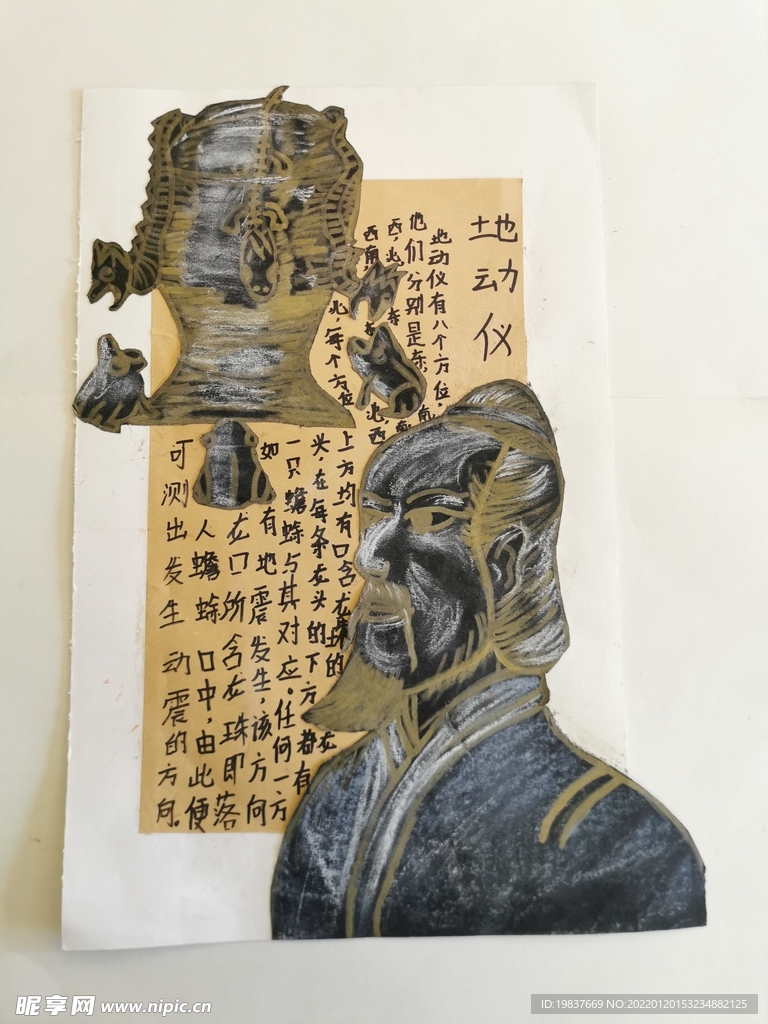 地动仪
地动仪有八个方位,
他们分别是东、南
西,北,东南
西南,东北,西
北,每个方位
上方均有口含龙珠的龙
头,在每条龙头的下方都有
一只蟾蜍与其对应。任何一方
如有地震发生,该方向
龙口所含龙珠即落
人蟾蜍口中,由此便
可测出发生动震的方向。
昵享网 www.nipic.cn
ID:19837669 NO:20220120153234882125